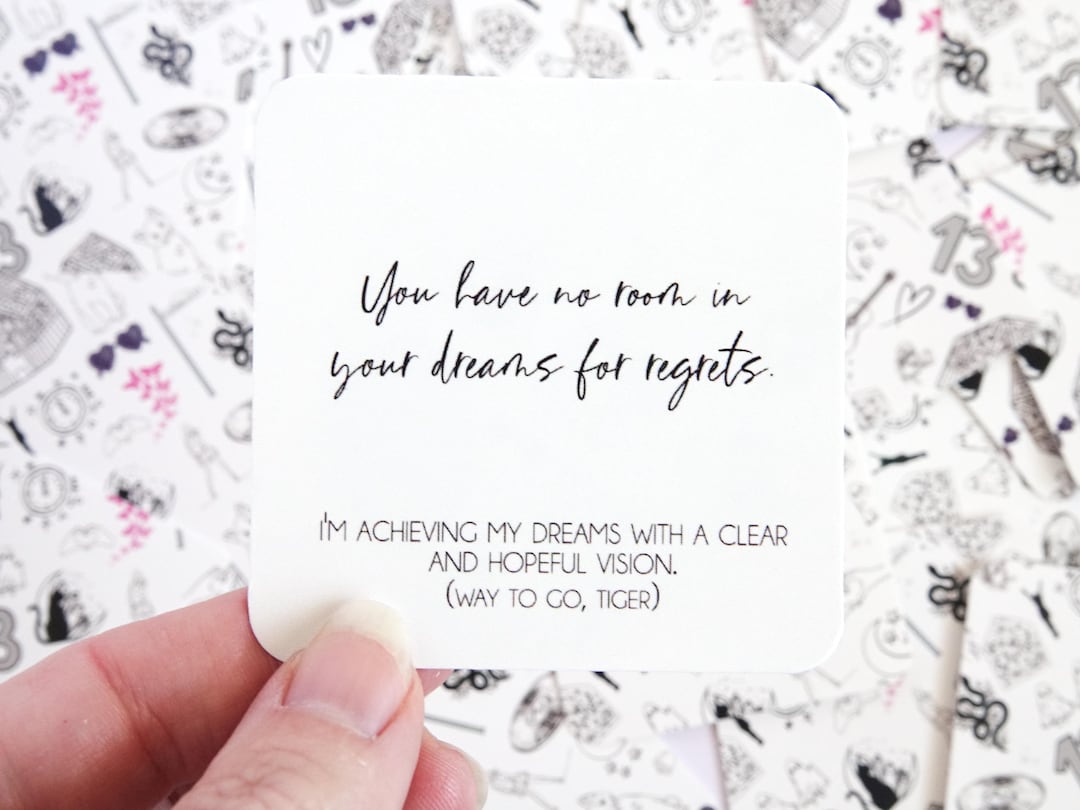 You have no room in
your dreams for regrets.
I'M ACHIEVING MY DREAMS WITH A CLEAR
AND HOPEFUL VISION.
(WAY TO GO, TIGER)
13